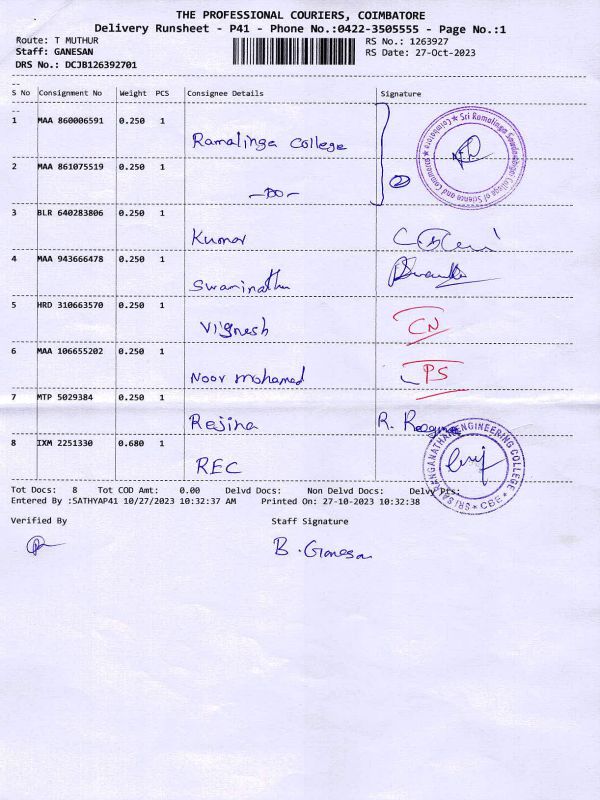 THE PROFESSIONAL COURIERS, COIMBATORE
Delivery Runsheet - P41 - Phone No.:0422-3505555 - Page No.:1
Route: T MUTHUR RS No.: 1263927
Staff: GANESAN RS Date: 27-Oct-2023
DRS No.: DCJB126392701
S No Consignment No Weight PCS Consignee Details Signature
1 MAA 860006591 0.250 1
Ramalinga College
2 MAA 861075519 0.250 1
-DO- 2
3 BLR 640283806 0.250 1
Kumar
4 MAA 943666478 0.250 1
Swaminathan
5 HRD 310663570 0.250 1
Vignesh CN
6 MAA 106655202 0.250 1
Noor mohamed PS
7 MTP 5029384 0.250 1
Rejina R.
8 IXM 2251330 0.680 1
REC
Tot Docs: 8 Tot COD Amt: 0.00 Delvd Docs: Non Delvd Docs: Delvy Pts:
Entered By :SATHYAP41 10/27/2023 10:32:37 AM Printed On: 27-10-2023 10:32:38
Verified By Staff Signature
B. Ganesan